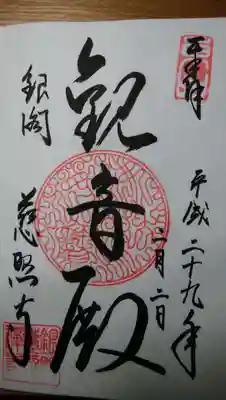 奉拝
平成二十九年
二月二日
觀音殿
銀閣
慈照寺